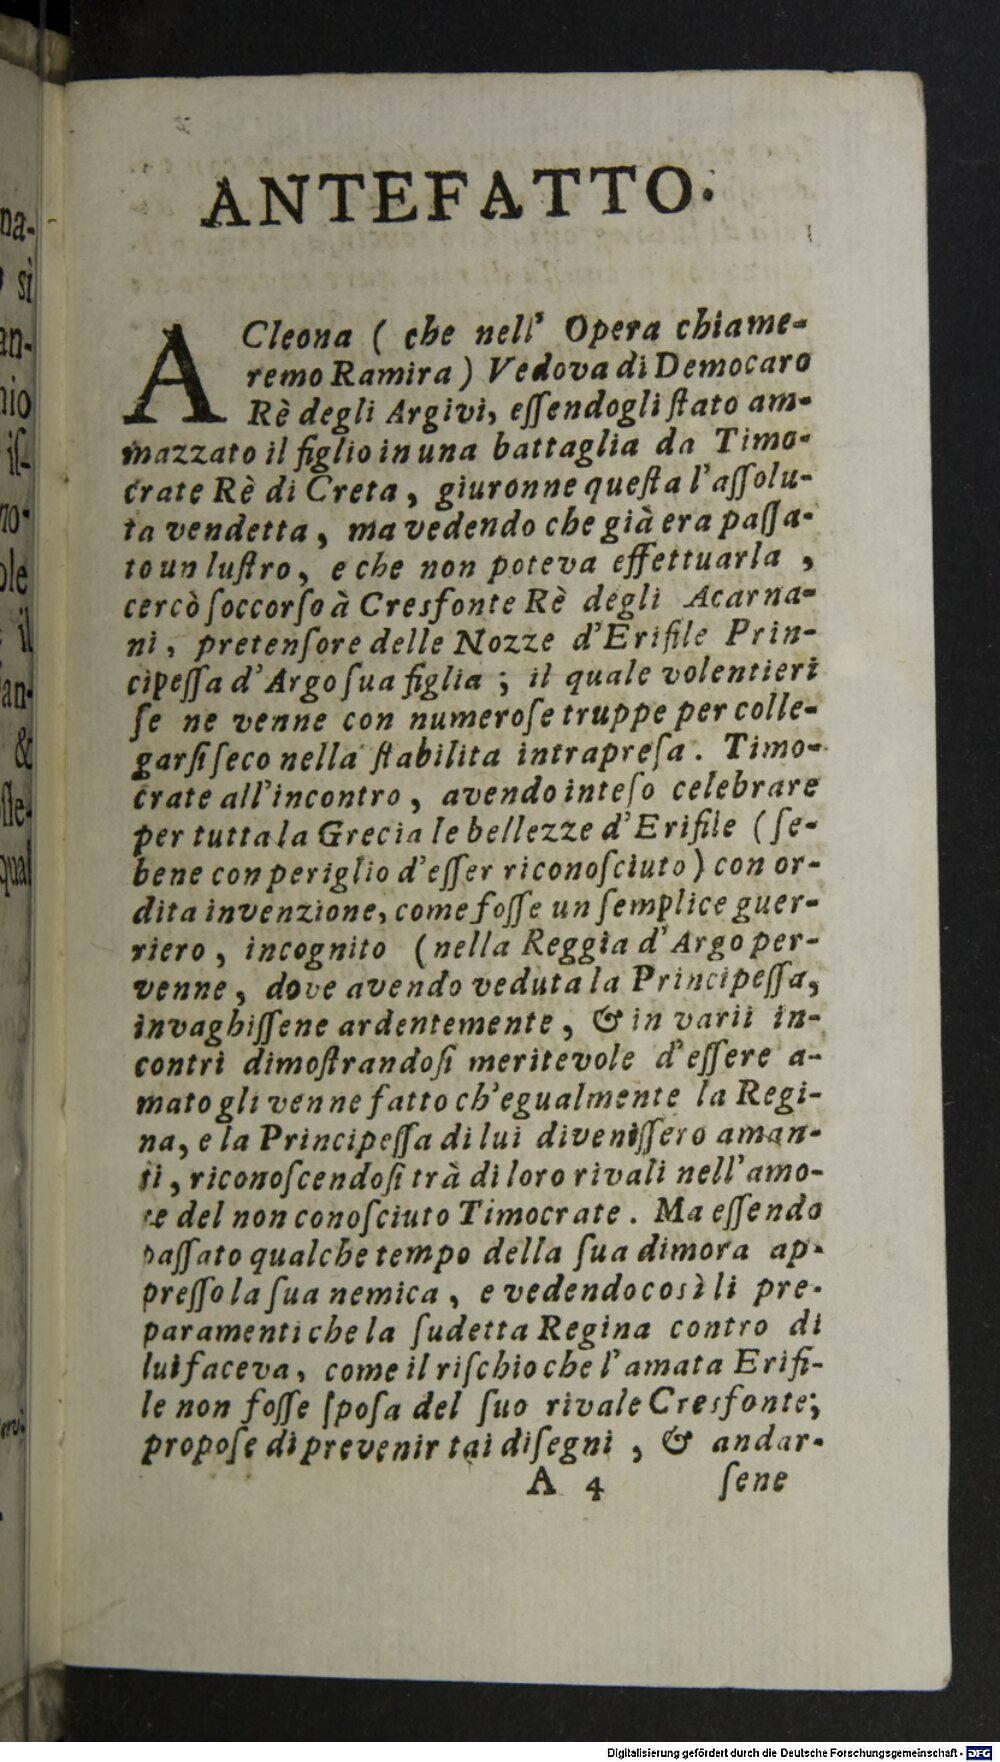 ANTEFATTO.
A Cleona ( che nell' Opera chiame-
remo Ramira ) Vedova di Democaro
Rè degli Argivi, eſſendogli ſtato am-
mazzato il figlio in una battaglia da Timo-
crate Rè di Creta, giuronne queſta l'aſſolu-
ta vendetta, ma vedendo che già era paſſa-
to un luſtro, e che non poteva effettuarla,
cercò ſoccorſo à Cresfonte Rè degli Acarna-
ni, pretenſore delle Nozze d'Erifile Prin-
cipeſſa d'Argo ſua figlia; il quale volentieri
ſe ne venne con numeroſe truppe per colle-
garſi ſeco nella ſtabilita intrapreſa. Timo-
crate all'incontro, avendo inteſo celebrare
per tutta la Grecia le bellezze d'Erifile (ſe-
bene con periglio d'eſſer riconoſciuto) con or-
dita invenzione, come foſſe un ſemplice guer-
riero, incognito (nella Reggia d'Argo per-
venne, dove avendo veduta la Principeſſa,
invaghiſſene ardentemente, & in varii in-
contri dimoſtrandoſi meritevole d'eſſere a-
mato gli venne fatto ch'egualmente la Regi-
na, e la Principeſſa di lui diveniſſero aman-
ti, riconoſcendoſi trà di loro rivali nell'amo-
re del non conoſciuto Timocrate. Ma eſſendo
paſſato qualche tempo della ſua dimora ap-
preſſo la ſua nemica, e vedendo così li pre-
paramenti che la ſudetta Regina contro di
lui faceva, come il riſchio che l'amata Erifi-
le non foſſe ſpoſa del ſuo rivale Cresfonte;
propoſe di prevenir tai diſegni, & andar-
A 4 ſene
na-
sì
an-
nio
iſ-
no-
ole
il
an-
&
ſſe-
qual
Digitalisierung gefördert durch die Deutsche Forschungsgemeinschaft - DFG